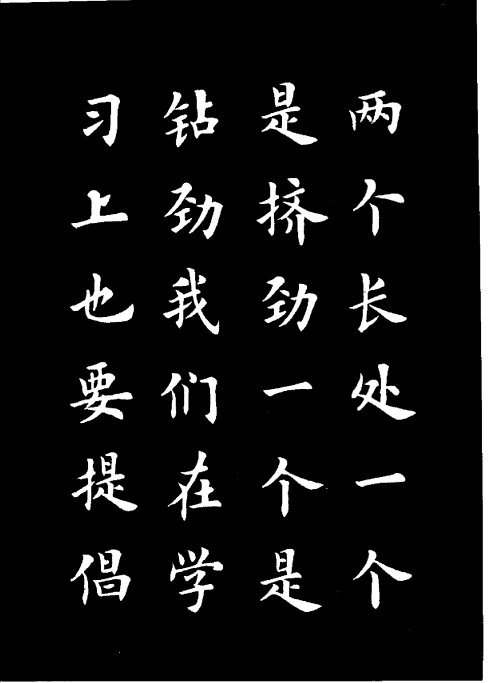 两个长处一个
是挤劲一个是
钻劲我们在学
习上也要提倡